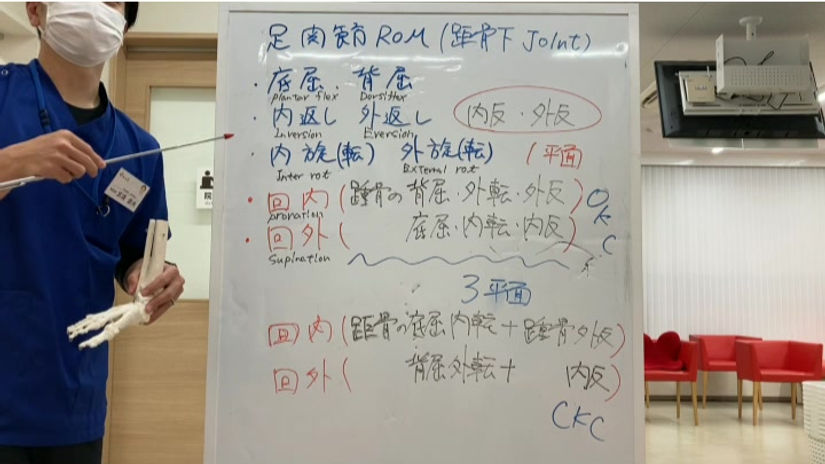 足関節ROM(距骨下Joint)
・底屈・背屈
plantar flex Dorsiflex
・内返し 外返し 内反・外反
Inversion Eversion
・内旋(転) 外旋(転) 1平面
Inter rot External rot
・回内(踵骨の背屈・外転・外反)
pronation
・回外( 底屈・内転・内反)
Supination
OKC
3平面
回内(距骨の底屈内転+踵骨外反)
回外( 背屈外転+ 内反)
CKC